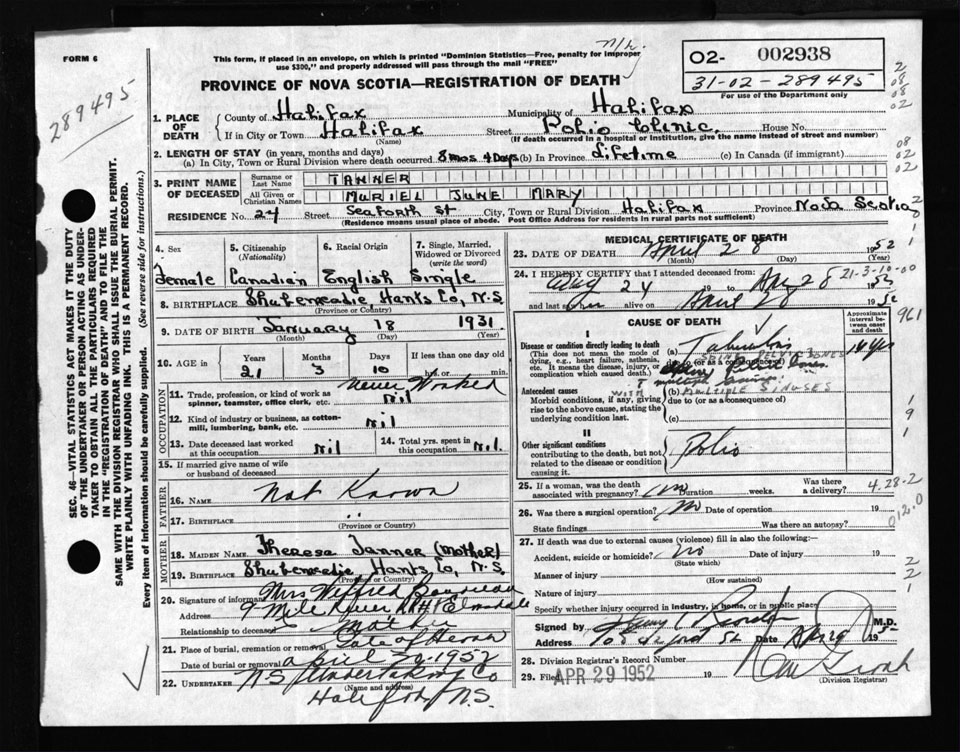 FORM 6
This form, if placed in an envelope, on which is printed "Dominion Statistics—Free, penalty for improper
use $300," and properly addressed will pass through the mail "FREE"
PROVINCE OF NOVA SCOTIA—REGISTRATION OF DEATH
O2- 002938
31-02-289495
For use of the Department only
289495
1. PLACE OF DEATH
County of Halifax Municipality of Halifax
If in City or Town Halifax Street Polio Clinic. House No.
(Name) (If death occurred in a hospital or institution, give the name instead of street and number)
2. LENGTH OF STAY (in years, months and days)
(a) In City, Town or Rural Division where death occurred 8 mos 4 Days (b) In Province Lifetime (c) In Canada (if immigrant)
3. PRINT NAME OF DECEASED
Surname or Last Name TANNER
All Given or Christian Names MURIEL JUNE MARY
RESIDENCE No. 24 Street Seaforth St City, Town or Rural Division Halifax Province Nova Scotia
(Residence means usual place of abode. Post Office Address for residents in rural parts not sufficient)
4. Sex 5. Citizenship (Nationality) 6. Racial Origin 7. Single, Married, Widowed or Divorced (write the word)
Female Canadian English Single
8. BIRTHPLACE Shubenacadie, Hants Co, N.S.
(Province or Country)
9. DATE OF BIRTH January 18 1931
(Month) (Day) (Year)
10. AGE in Years Months Days If less than one day
21 3 10 hrs. or min.
OCCUPATION
Never Worked
11. Trade, profession, or kind of work as spinner, teamster, office clerk, etc. nil
12. Kind of industry or business, as cotton-mill, lumbering, bank, etc. nil
13. Date deceased last worked at this occupation nil 14. Total yrs. spent in this occupation Nil.
15. If married give name of wife or husband of deceased
FATHER
16. NAME Not Known
17. BIRTHPLACE "
(Province or Country)
MOTHER
18. MAIDEN NAME Theresa Tanner (mother)
19. BIRTHPLACE Shubenacadie, Hants Co, N.S.
(Province or Country)
20. Signature of informant Mrs Wilfred
Address 9 Mile River RR#1 Elmsdale
Relationship to deceased Mother
21. Place of burial, cremation or removal Gate of Heaven
Date of burial or removal April 30 1952
22. UNDERTAKER N S Undertaking Co
(Name and address)
Halifax N.S.
MEDICAL CERTIFICATE OF DEATH
23. DATE OF DEATH April 28 1952
(Month) (Day) (Year)
24. I HEREBY CERTIFY that I attended deceased from:
Aug 24 to Apr 28 1952
and last saw her alive on April 28 1952
21-3-10-00
CAUSE OF DEATH
Approximate interval between onset and death
I
Disease or condition directly leading to death
(This does not mean the mode of dying, e.g., heart failure, asthenia, etc. It means the disease, injury, or complication which caused death.)
(a) Tuberculosis
due to (or as a consequence of)
SPINE, PELVIC BONES
Antecedent causes
Morbid conditions, if any, giving rise to the above cause, stating the underlying condition last.
(b) WITH MULTIPLE SINUSES
due to (or as a consequence of)
(c)
II
Other significant conditions contributing to the death, but not related to the disease or condition causing it.
Polio
25. If a woman, was the death associated with pregnancy? no Duration weeks. Was there a delivery?
4.28-2
26. Was there a surgical operation? no Date of operation 19
State findings Was there an autopsy?
27. If death was due to external causes (violence) fill in also the following:
Accident, suicide or homicide? no Date of injury 19
(State which)
Manner of injury
(How sustained)
Nature of injury
Specify whether injury occurred in industry, in home, or in public place
Signed by M.D.
Address Date
28. Division Registrar's Record Number
29. Filed APR 29 1952 19
(Division Registrar)
SEC. 46—VITAL STATISTICS ACT MAKES IT THE DUTY
OF THE UNDERTAKER OR PERSON ACTING AS UNDER-
TAKER TO OBTAIN ALL THE PARTICULARS REQUIRED
IN THE "REGISTRATION OF DEATH" AND TO FILE THE
SAME WITH THE DIVISION REGISTRAR WHO SHALL ISSUE THE BURIAL PERMIT.
WRITE PLAINLY WITH UNFADING INK. THIS IS A PERMANENT RECORD.
Every item of information should be carefully supplied. (See reverse side for instructions.)